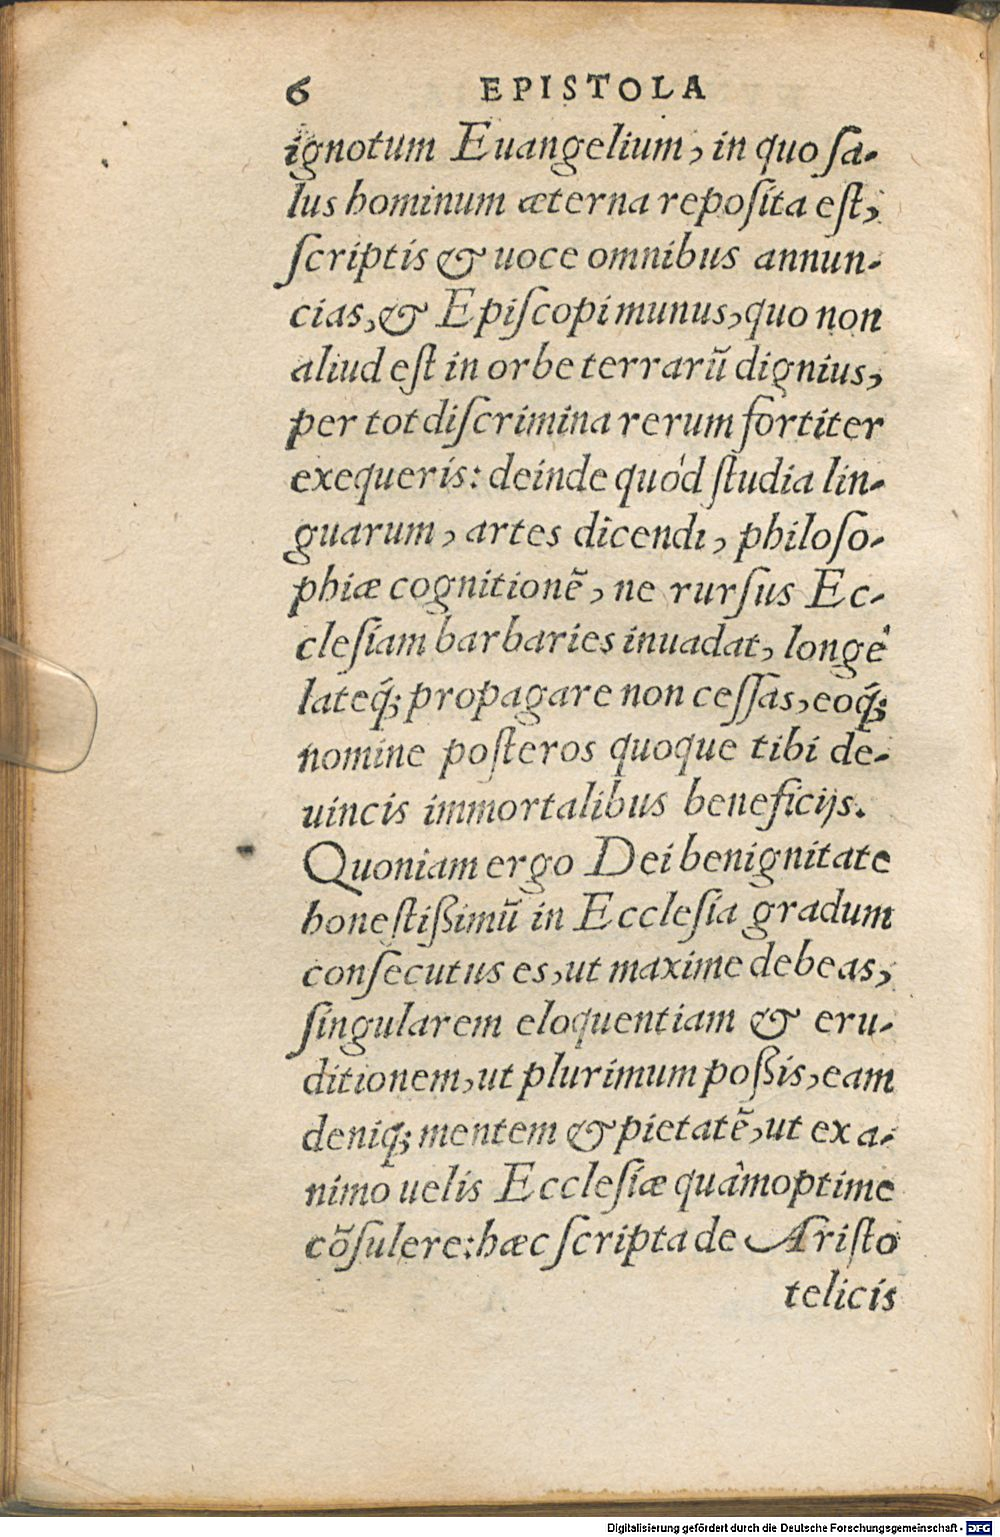 6 EPISTOLA
ignotum Euangelium, in quo sa-
lus hominum æterna reposita est,
scriptis & uoce omnibus annun-
cias, & Episcopi munus, quo non
aliud est in orbe terrarũ dignius,
per tot discrimina rerum fortiter
exequeris: deinde quòd studia lin-
guarum, artes dicendi, philoso-
phiæ cognitionẽ, ne rursus Ec-
clesiam barbaries inuadat, longè
lateq́; propagare non cessas, eoq́;
nomine posteros quoque tibi de-
uincis immortalibus beneficijs.
Quoniam ergo Dei benignitate
honestißimũ in Ecclesia gradum
consecutus es, ut maxime debeas,
singularem eloquentiam & eru-
ditionem, ut plurimum poßis, eam
deniq; mentem & pietatẽ, ut ex a-
nimo uelis Ecclesiæ quàm optime
cõsulere: hæc scripta de Aristo
telicis
Digitalisierung gefördert durch die Deutsche Forschungsgemeinschaft - DFG